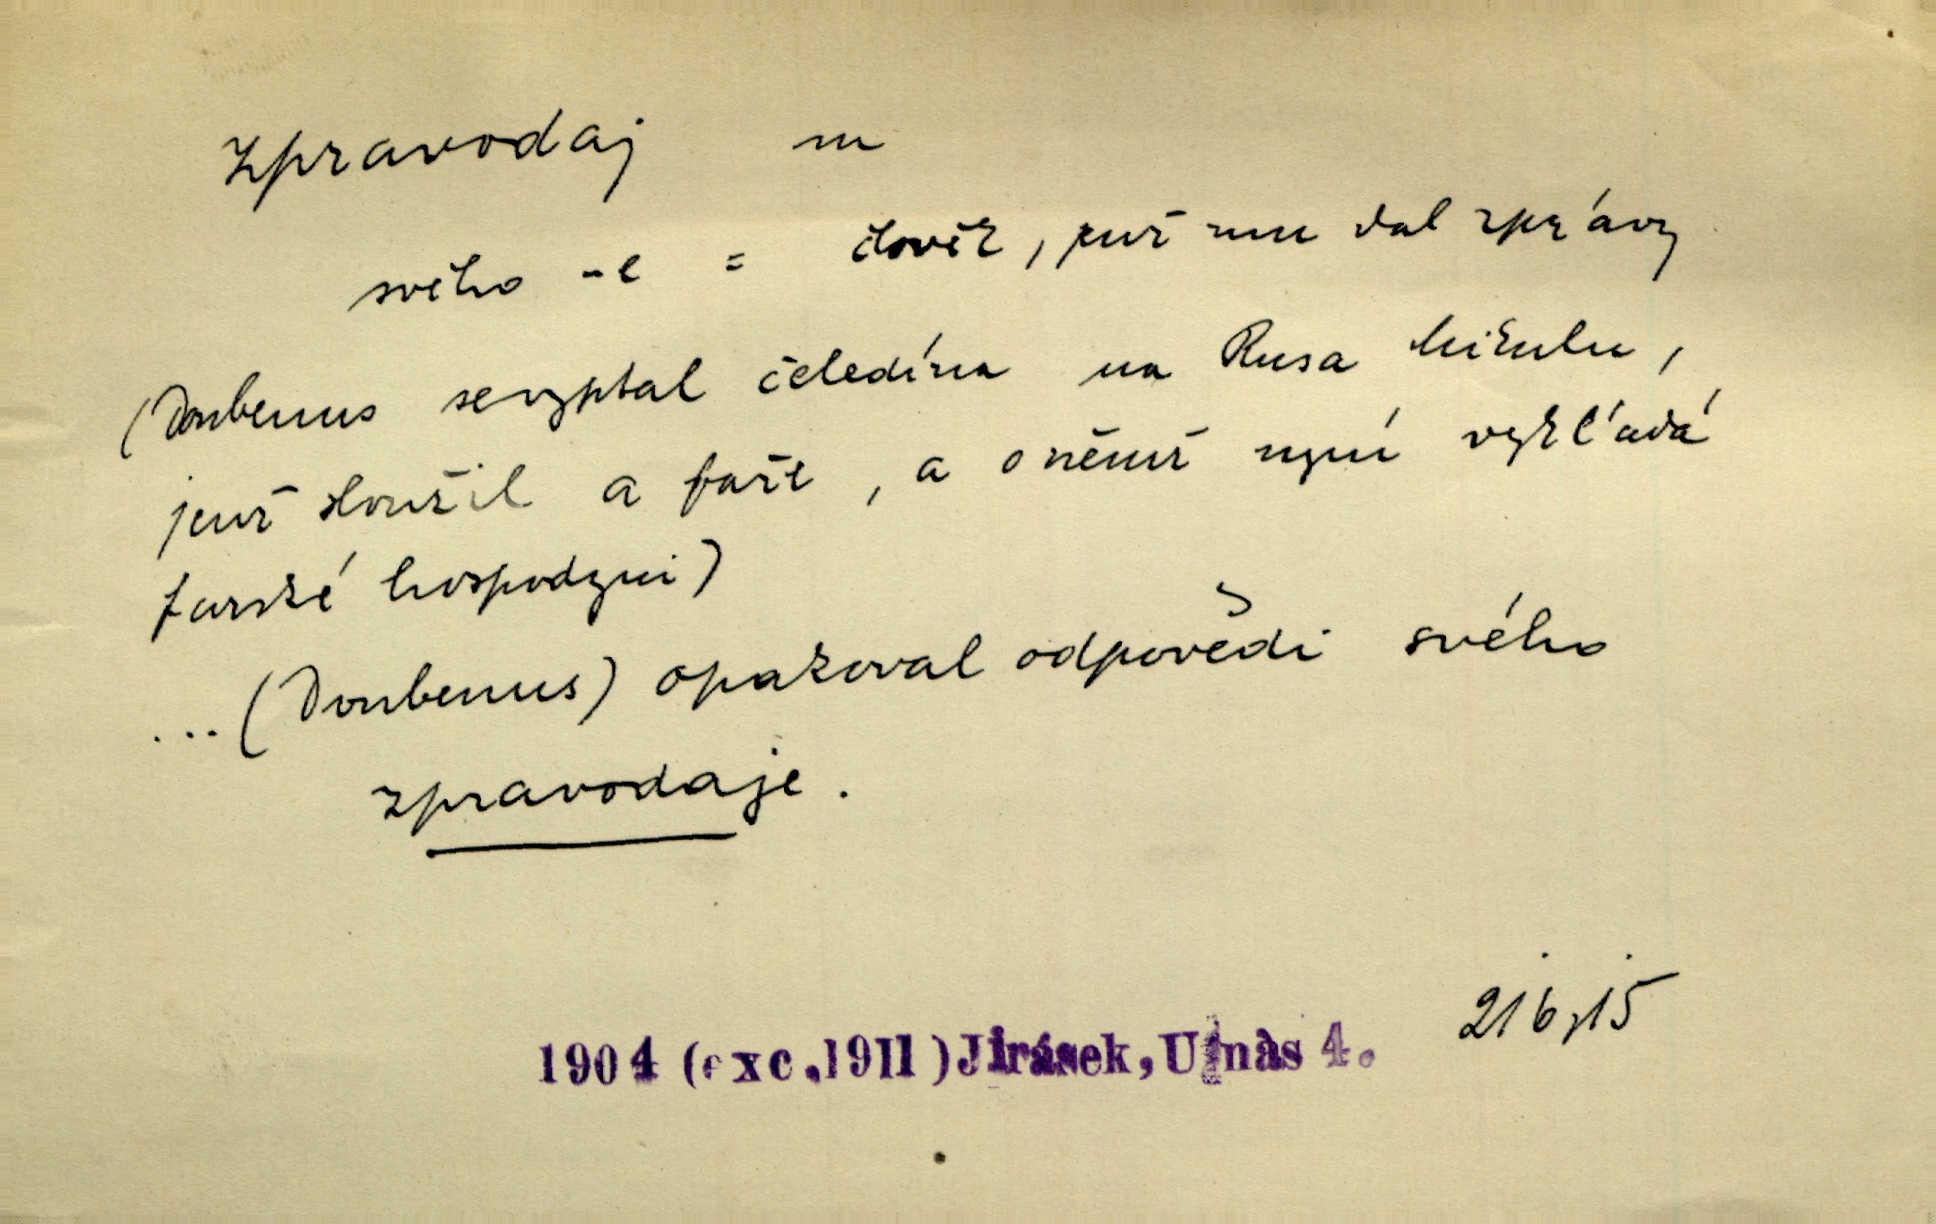 zpravodaj m
svého -e = člověk, jenž mu dal zprávy
(Doubenus se vyptal čeledína na Rusa Mikulu,
jenž sloužil a faře, a o němž nyní vykládá
farské hospodyni)
... (Doubenus) opakoval odpovědi svého
zpravodaje.
1904 (exc.1911) Jirásek, U nàs 4. 216,15